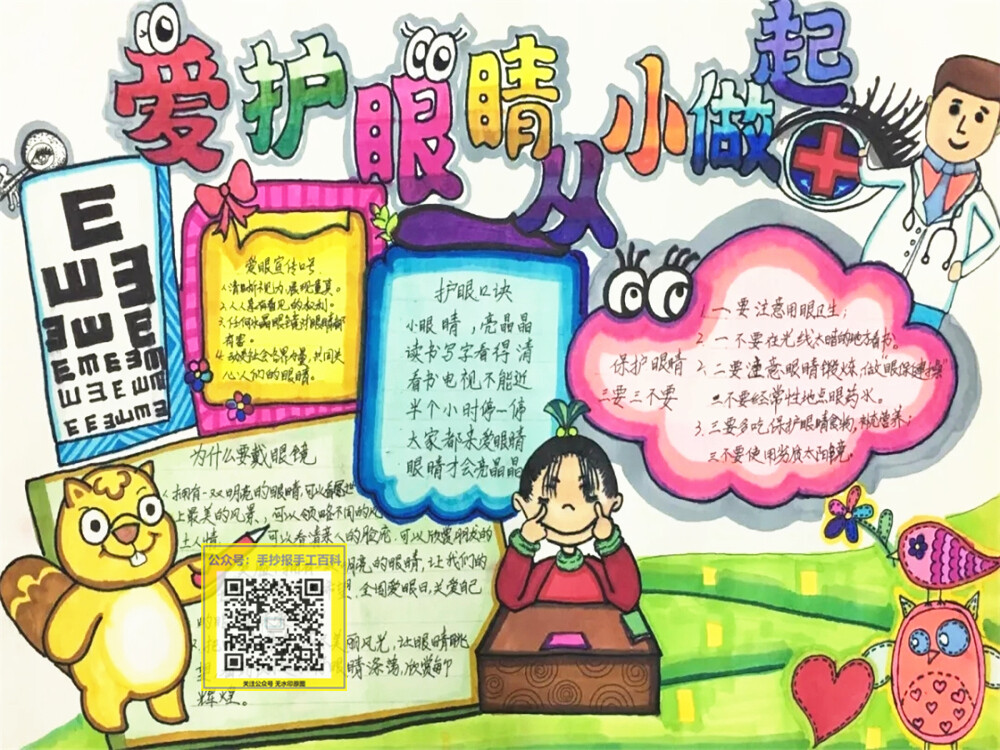 爱护眼睛从小做起
E
E E
E E E
E E E E E
E E E E E
E E E E E E
爱眼宣传口号
1.清晰视力,展现重真。
2.人人享有看见的权利。
有害。
4.动员社会各界力量,共同关
心人们的眼睛。
护眼口诀
小眼睛,亮晶晶
读书写字看得清
看书电视不能近
半个小时停一停
大家都来爱眼睛
眼睛才会亮晶晶
保护眼睛
三要三不要
1.一要注意用眼卫生;
一不要在光线太暗的地方看书。
2.二要注意眼睛锻炼,做"眼保健操"
二不要经常性地点眼药水。
3.三要多吃保护眼睛食物,补充营养;
三不要使用劣质太阳镜。
为什么要戴眼镜
拥有一双明亮的眼睛,可以看
上最美的风景,可以领略不同的风
土人情。可以看清亲人的脸庞,可以欣赏朋友的
亮的眼睛,让我们的
全国爱眼日,关爱自
丽风光,让眼睛眺
欣赏
辉煌。
公众号:手抄报手工百科
关注公众号 无水印原图